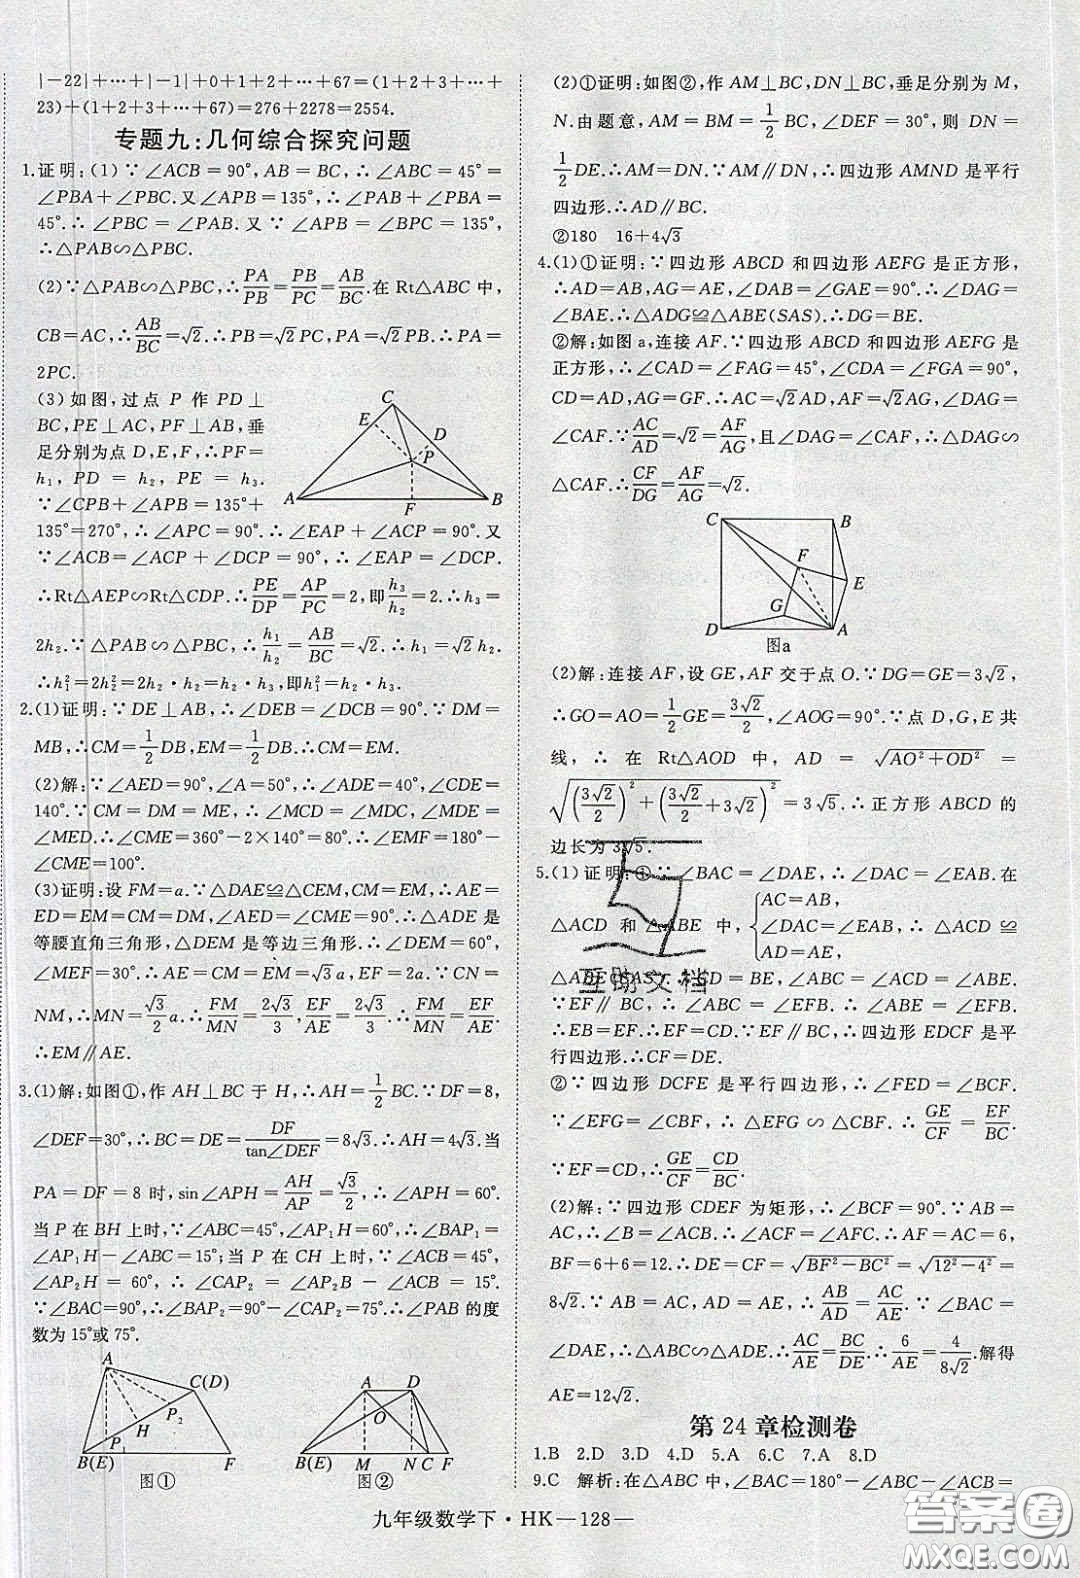 |−22|+…+|−1|+0+1+2+…+67=(1+2+3+…+
23)+(1+2+3+…+67)=276+2278=2554.
专题九:几何综合探究问题
1.证明:(1)∵∠ACB=90°,AB=BC,∴∠ABC=45°=
∠PBA+∠PBC.又∠APB=135°,∴∠PAB+∠PBA=
45°.∴∠PBC=∠PAB.又∵∠APB=∠BPC=135°,
∴△PAB∽△PBC.
(2)∵△PAB∽△PBC,∴PA/PB=PB/PC=AB/BC.在Rt△ABC中,
CB=AC,∴AB/BC=√2.∴PB=√2PC,PA=√2PB.∴PA=
2PC.
(3)如图,过点P作PD⊥
BC,PE⊥AC,PF⊥AB,垂
足分别为点D,E,F,∴PF=
h₁,PD=h₂,PE=h₃.
∵∠CPB+∠APB=135°+
135°=270°,∴∠APC=90°.∴∠EAP+∠ACP=90°.又
∵∠ACB=∠ACP+∠DCP=90°,∴∠EAP=∠DCP.
∴Rt△AEP∽Rt△CDP.∴PE/DP=AP/PC=2,即h₃/h₂=2.∴h₃=
2h₂.∵△PAB∽△PBC,∴h₁/h₂=AB/BC=√2.∴h₁=√2h₂.
∴h₁²=2h₂²=2h₂·h₂=h₂·h₃,即h₁²=h₂·h₃.
C
E
D
P
A
F
B
2.(1)证明:∵DE⊥AB,∴∠DEB=∠DCB=90°.∵DM=
MB,∴CM=1/2DB,EM=1/2DB.∴CM=EM.
(2)解:∵∠AED=90°,∠A=50°,∴∠ADE=40°,∠CDE=
140°.∵CM=DM=ME,∴∠MCD=∠MDC,∠MDE=
∠MED.∴∠CME=360°−2×140°=80°.∴∠EMF=180°−
∠CME=100°.
(3)证明:设FM=a.∵△DAE≌△CEM,CM=EM,∴AE=
ED=EM=CM=DM,∠AED=∠CME=90°.∴△ADE是
等腰直角三角形,△DEM是等边三角形.∴∠DEM=60°,
∠MEF=30°.∴AE=CM=EM=√3a,EF=2a.∵CN=
NM,∴MN=√3/2a.∴FM/MN=2√3/3,EF/AE=2√3/3.∴FM/MN=EF/AE.
∴EM∥AE.
3.(1)解:如图①,作AH⊥BC于H,∴AH=1/2BC.∵DF=8,
∠DEF=30°,∴BC=DE=DF/tan∠DEF=8√3.∴AH=4√3.当
PA=DF=8时,sin∠APH=AH/AP=√3/2,∴∠APH=60°.
当P在BH上时,∵∠ABC=45°,∠AP₁H=60°,∴∠BAP₁=
∠AP₁H−∠ABC=15°;当P在CH上时,∵∠ACB=45°,
∠AP₂H=60°,∴∠CAP₂=∠AP₂B−∠ACB=15°.
∵∠BAC=90°,∴∠BAP₂=90°−∠CAP₂=75°.∴∠PAB的度
数为15°或75°.
A
C(D)
P₂
H
P
B(E)
F
图①
A
D
O
B(E)
M
N
C
F
图②
(2)①证明:如图②,作AM⊥BC,DN⊥BC,垂足分别为M,
N.由题意,AM=BM=1/2BC,∠DEF=30°,则DN=
1/2DE.∴AM=DN.∵AM∥DN,∴四边形AMND是平行
四边形.∴AD∥BC.
②180 16+4√3
4.(1)①证明:∵四边形ABCD和四边形AEFG是正方形,
∴AD=AB,AG=AE,∠DAB=∠GAE=90°.∴∠DAG=
∠BAE.∴△ADG≌△ABE(SAS).∴DG=BE.
②解:如图a,连接AF.∵四边形ABCD和四边形AEFG是
正方形,∴∠CAD=∠FAG=45°,∠CDA=∠FGA=90°,
CD=AD,AG=GF.∴AC=√2AD,AF=√2AG,∠DAG=
∠CAF.∴AC/AD=√2=AF/AG,且∠DAG=∠CAF.∴△DAG∽
△CAF.∴CF/DG=AF/AG=√2.
C
B
F
E
G
D
A
图a
(2)解:连接AF,设GE,AF交于点O.∵DG=GE=3√2,
∴GO=AO=1/2GE=3√2/2,∠AOG=90°.∵点D,G,E共
线,∴在Rt△AOD中,AD=√(AO²+OD²)=
√((3√2/2)²+(3√2/2+3√2)²)=3√5.∴正方形ABCD的
边长为3√5.
5.(1)证明:①∵∠BAC=∠DAE,∴∠DAC=∠EAB.在
△ACD和△ABE中,{AC=AB,∠DAC=∠EAB,AD=AE,∴△ACD≌
△ABE(SAS).∴CD=BE,∠ABC=∠ACD=∠ABE.
∵EF∥BC,∴∠ABC=∠EFB.∴∠ABE=∠EFB.
∴EB=EF.∴EF=CD.∵EF∥BC,∴四边形EDCF是平
行四边形.∴CF=DE.
②∵四边形DCFE是平行四边形,∴∠FED=∠BCF.
∵∠EFG=∠CBF,∴△EFG∽△CBF.∴GE/CF=EF/BC.
∵EF=CD,∴GE/CF=CD/BC.
(2)解:∵四边形CDEF为矩形,∴∠BCF=90°.∵AB=
AC,∴∠B=∠ACB.∴∠ACF=∠AFC.∴AF=AC=6,
BF=6+6=12.∴DE=CF=√(BF²−BC²)=√(12²−4²)=
8√2.∵AB=AC,AD=AE,∴AB/AD=AC/AE.∵∠BAC=
∠DAE,∴△ABC∽△ADE.∴AC/AE=BC/DE.∴6/AE=4/8√2.解得
AE=12√2.
第24章检测卷
1.B 2.D 3.D 4.D 5.A 6.C 7.A 8.D
9.C 解析:在△ABC中,∠BAC=180°−∠ABC−∠ACB=
九年级数学下·HK—128—
互助文档
答案圈
MXQE.COM